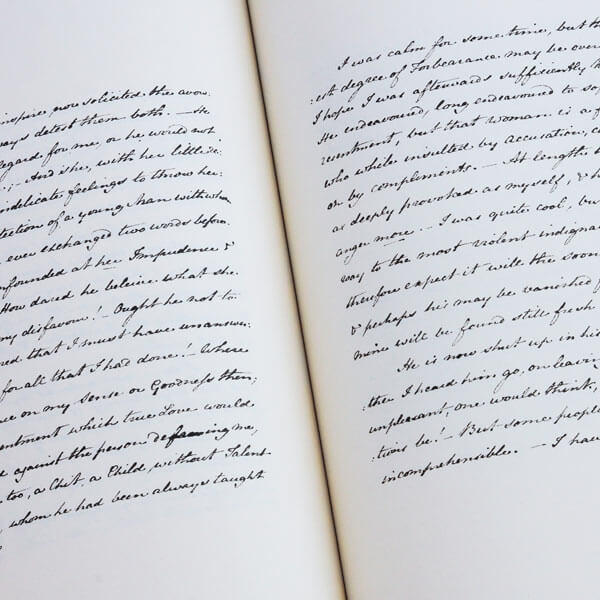 inspires now solicited the avow:
ways detest them both. — He
regard for me, or he would not
; — And she, with her little re:
indelicate feelings to throw her:
tection of a young Man with whom
ever exchanged two words before.
nfounded at her Impudence &
How dared he beleive what she
my disfavour! — Ought he not to
red that I must have unanswer:
for all that I had done! — Where
ce on my sense or Goodness then;
entment which true Love would
against the person defaming me,
too, a Chit, a Child, without Talent
, whom he had been always taught
I was calm for some time, but th
:est degree of Forbearance may be over
I hope I was afterwards sufficiently k
He endeavoured, long endeavoured to so
resentment, but that woman is a f
who while insulted by accusation, ca
or by compliments. — At length h
as deeply provoked as myself, & h
anger more. — I was quite cool, but
way to the most violent indigna
therefore expect it will the soon
& perhaps his may be vanished f
mine will be found still fresh
He is now shut up in his
ther I heard him go, on leavin
unpleasant, one would think,
:tions be! — But some people
incomprehensible. — I have